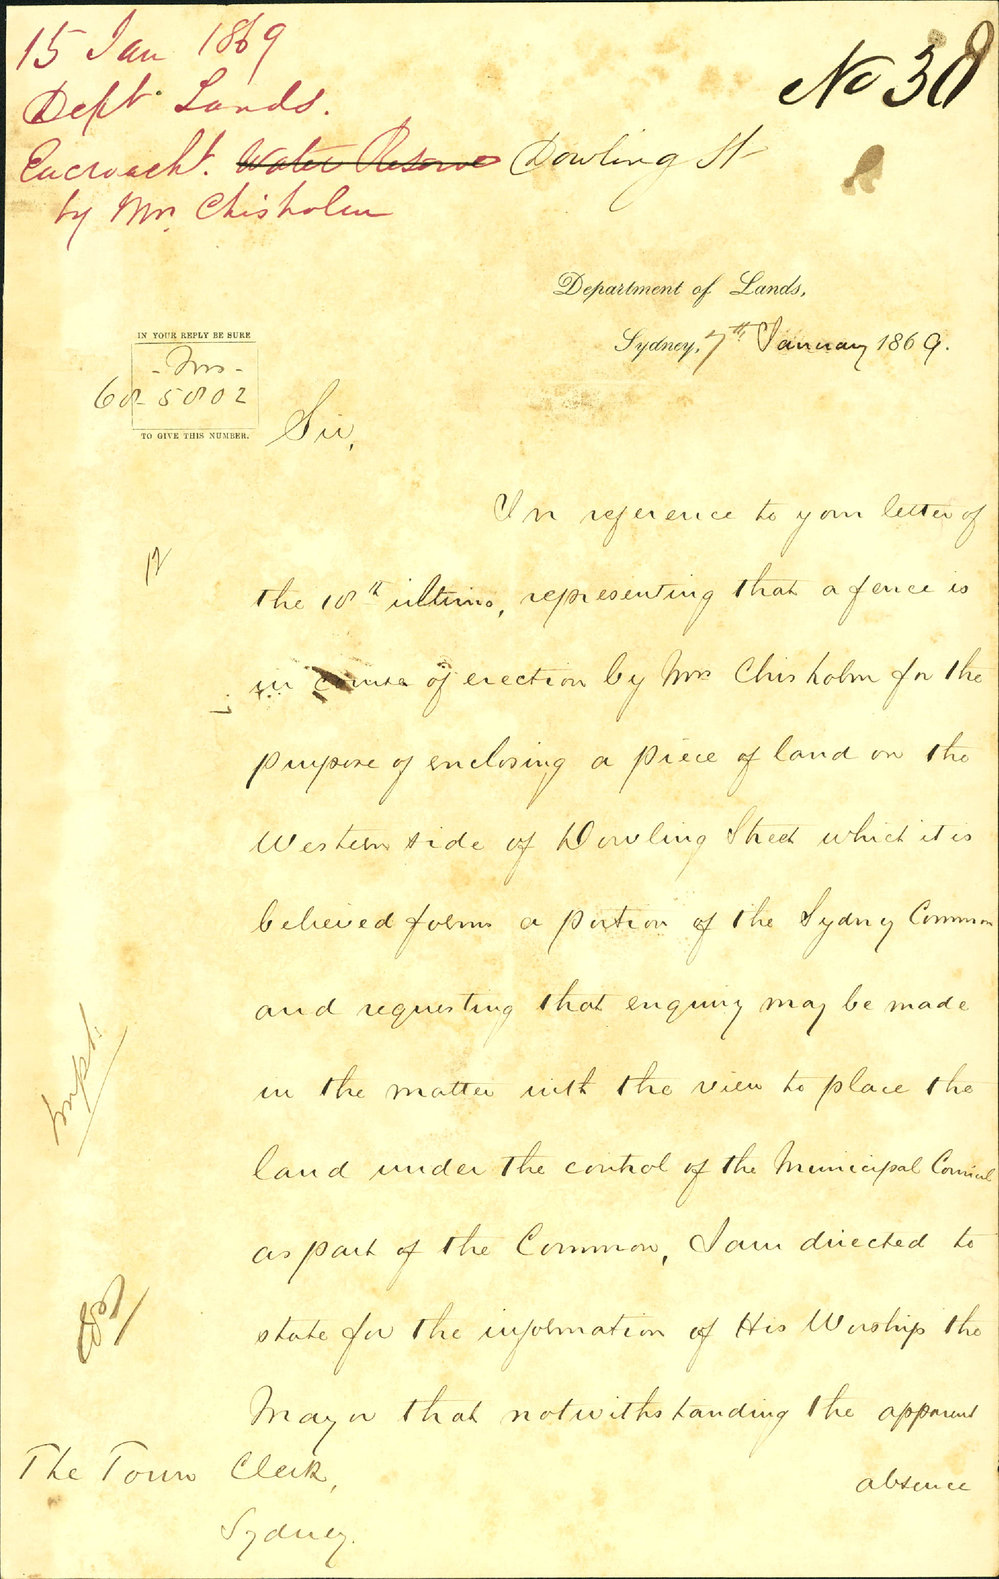 15 Jan 1869
No 38
Dept. Lands.
Encroacht. Water Reserve Dowling St
by Mrs. Chisholm
Department of Lands,
Sydney, 7th January 1869.
IN YOUR REPLY BE SURE
- Mrs -
68-5802
TO GIVE THIS NUMBER.
Sir,
In reference to your letter of
the 18th ultimo, representing that a fence is
in course of erection by Mrs Chisholm for the
purpose of enclosing a piece of land on the
Western side of Dowling Street which it is
believed forms a portion of the Sydney Common
and requesting that enquiry may be made
in the matter with the view to place the
land under the control of the Municipal Council
as part of the Common, I am directed to
state for the information of His Worship the
Mayor that notwithstanding the apparent
absence
The Town Clerk,
Sydney.